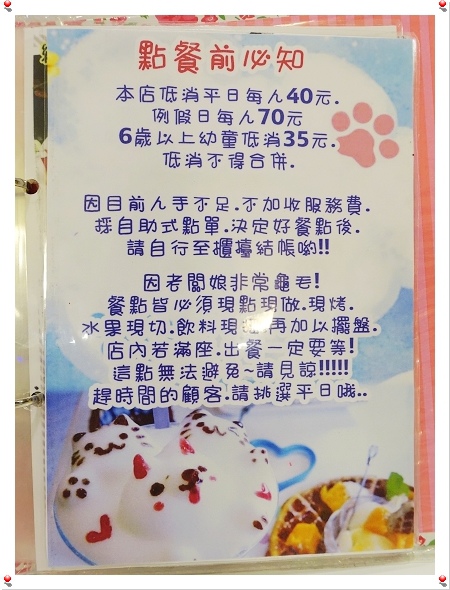 點餐前必知
本店低消平日每人40元.
例假日每人70元
6歲以上幼童低消35元.
低消不得合併.
因目前人手不足.不加收服務費.
採自助式點單.決定好餐點後.
請自行至櫃檯結帳喲!!
因老闆娘非常龜毛!
餐點皆必須現點現做.現烤.
水果現切.飲料現 .再加以擺盤.
店內若滿座.出餐一定要等!
這點無法避免~請見諒!!!!!
趕時間的顧客.請挑選平日哦..